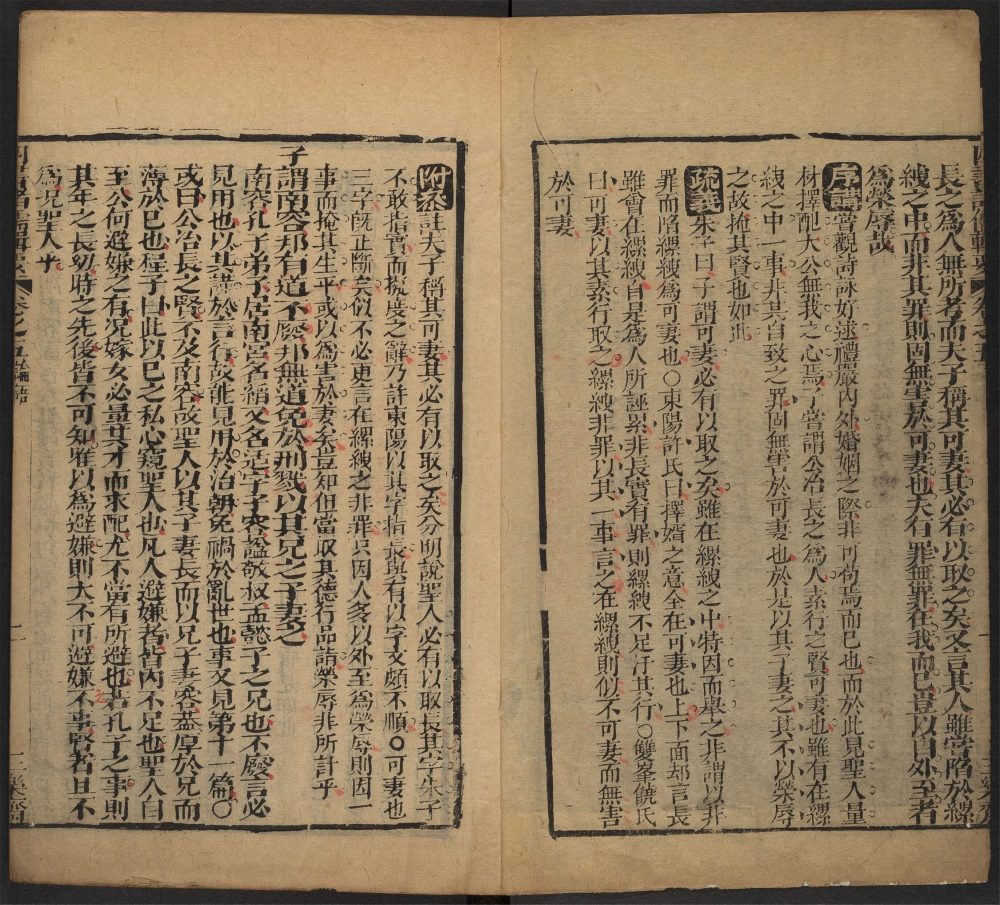 長之爲人無所考而夫子稱其可妻其必有以取之矣又言其人雖嘗陷於縲
絏之中而非其罪則固無害於可妻也夫有罪無罪在我而已豈以自外至者
爲榮辱哉
序講嘗觀詩詠好逑禮嚴內外婚姻之際非可苟焉而已也而於此見聖人量
材擇配大公無我之心焉子嘗謂公冶長之爲人素行之賢可妻也雖有在縲
絏之中一事非其自致之罪固無害於可妻也於是以其子妻之其不以榮辱
之故掩其賢也如此
疏義朱子曰子謂可妻必有以取之矣雖在縲絏之中特因而舉之非謂以非
罪而陷縲絏爲可妻也○東陽許氏曰擇婿之意全在可妻也上下面却言長
雖會在縲絏自是爲人所誣累非長實有罪則縲絏不足汙其行○雙峯饒氏
曰可妻以其素行取之縲絏非罪以其一事言之在縲絏則似不可妻而無害
於可妻
附叅註夫子稱其可妻其必有以取之矣分明說聖人必有以取長其字朱子
不敢指實而擬度之辭乃許東陽以其字指長與有以字文頗不順○可妻也
三字旣正斷矣似不必更言在縲絏之非罪只因人多以外至爲榮辱則因一
事而掩其生平或以爲害於妻矣豈知但當取其德行品詣榮辱非所計乎
子謂南容邦有道不廢邦無道免於刑戮以其兄之子妻之
南容孔子弟子居南宮名縚又名适字子容諡敬叔孟懿子之兄也不廢言必
見用也以其謹於言行故能見用於治朝免禍於亂世也事又見第十一篇○
或曰公冶長之賢不及南容故聖人以其子妻長而以兄子妻容蓋厚於兄而
薄於己也程子曰此以己之私心窺聖人也凡人避嫌者皆內不足也聖人自
至公何避嫌之有况嫁女必量其才而求配尤不當有所避也若孔子之事則
其年之長幼時之先後皆不可知唯以爲避嫌則大不可避嫌之事賢者且不
爲况聖人乎
卷之五
論語
二
三樂齋